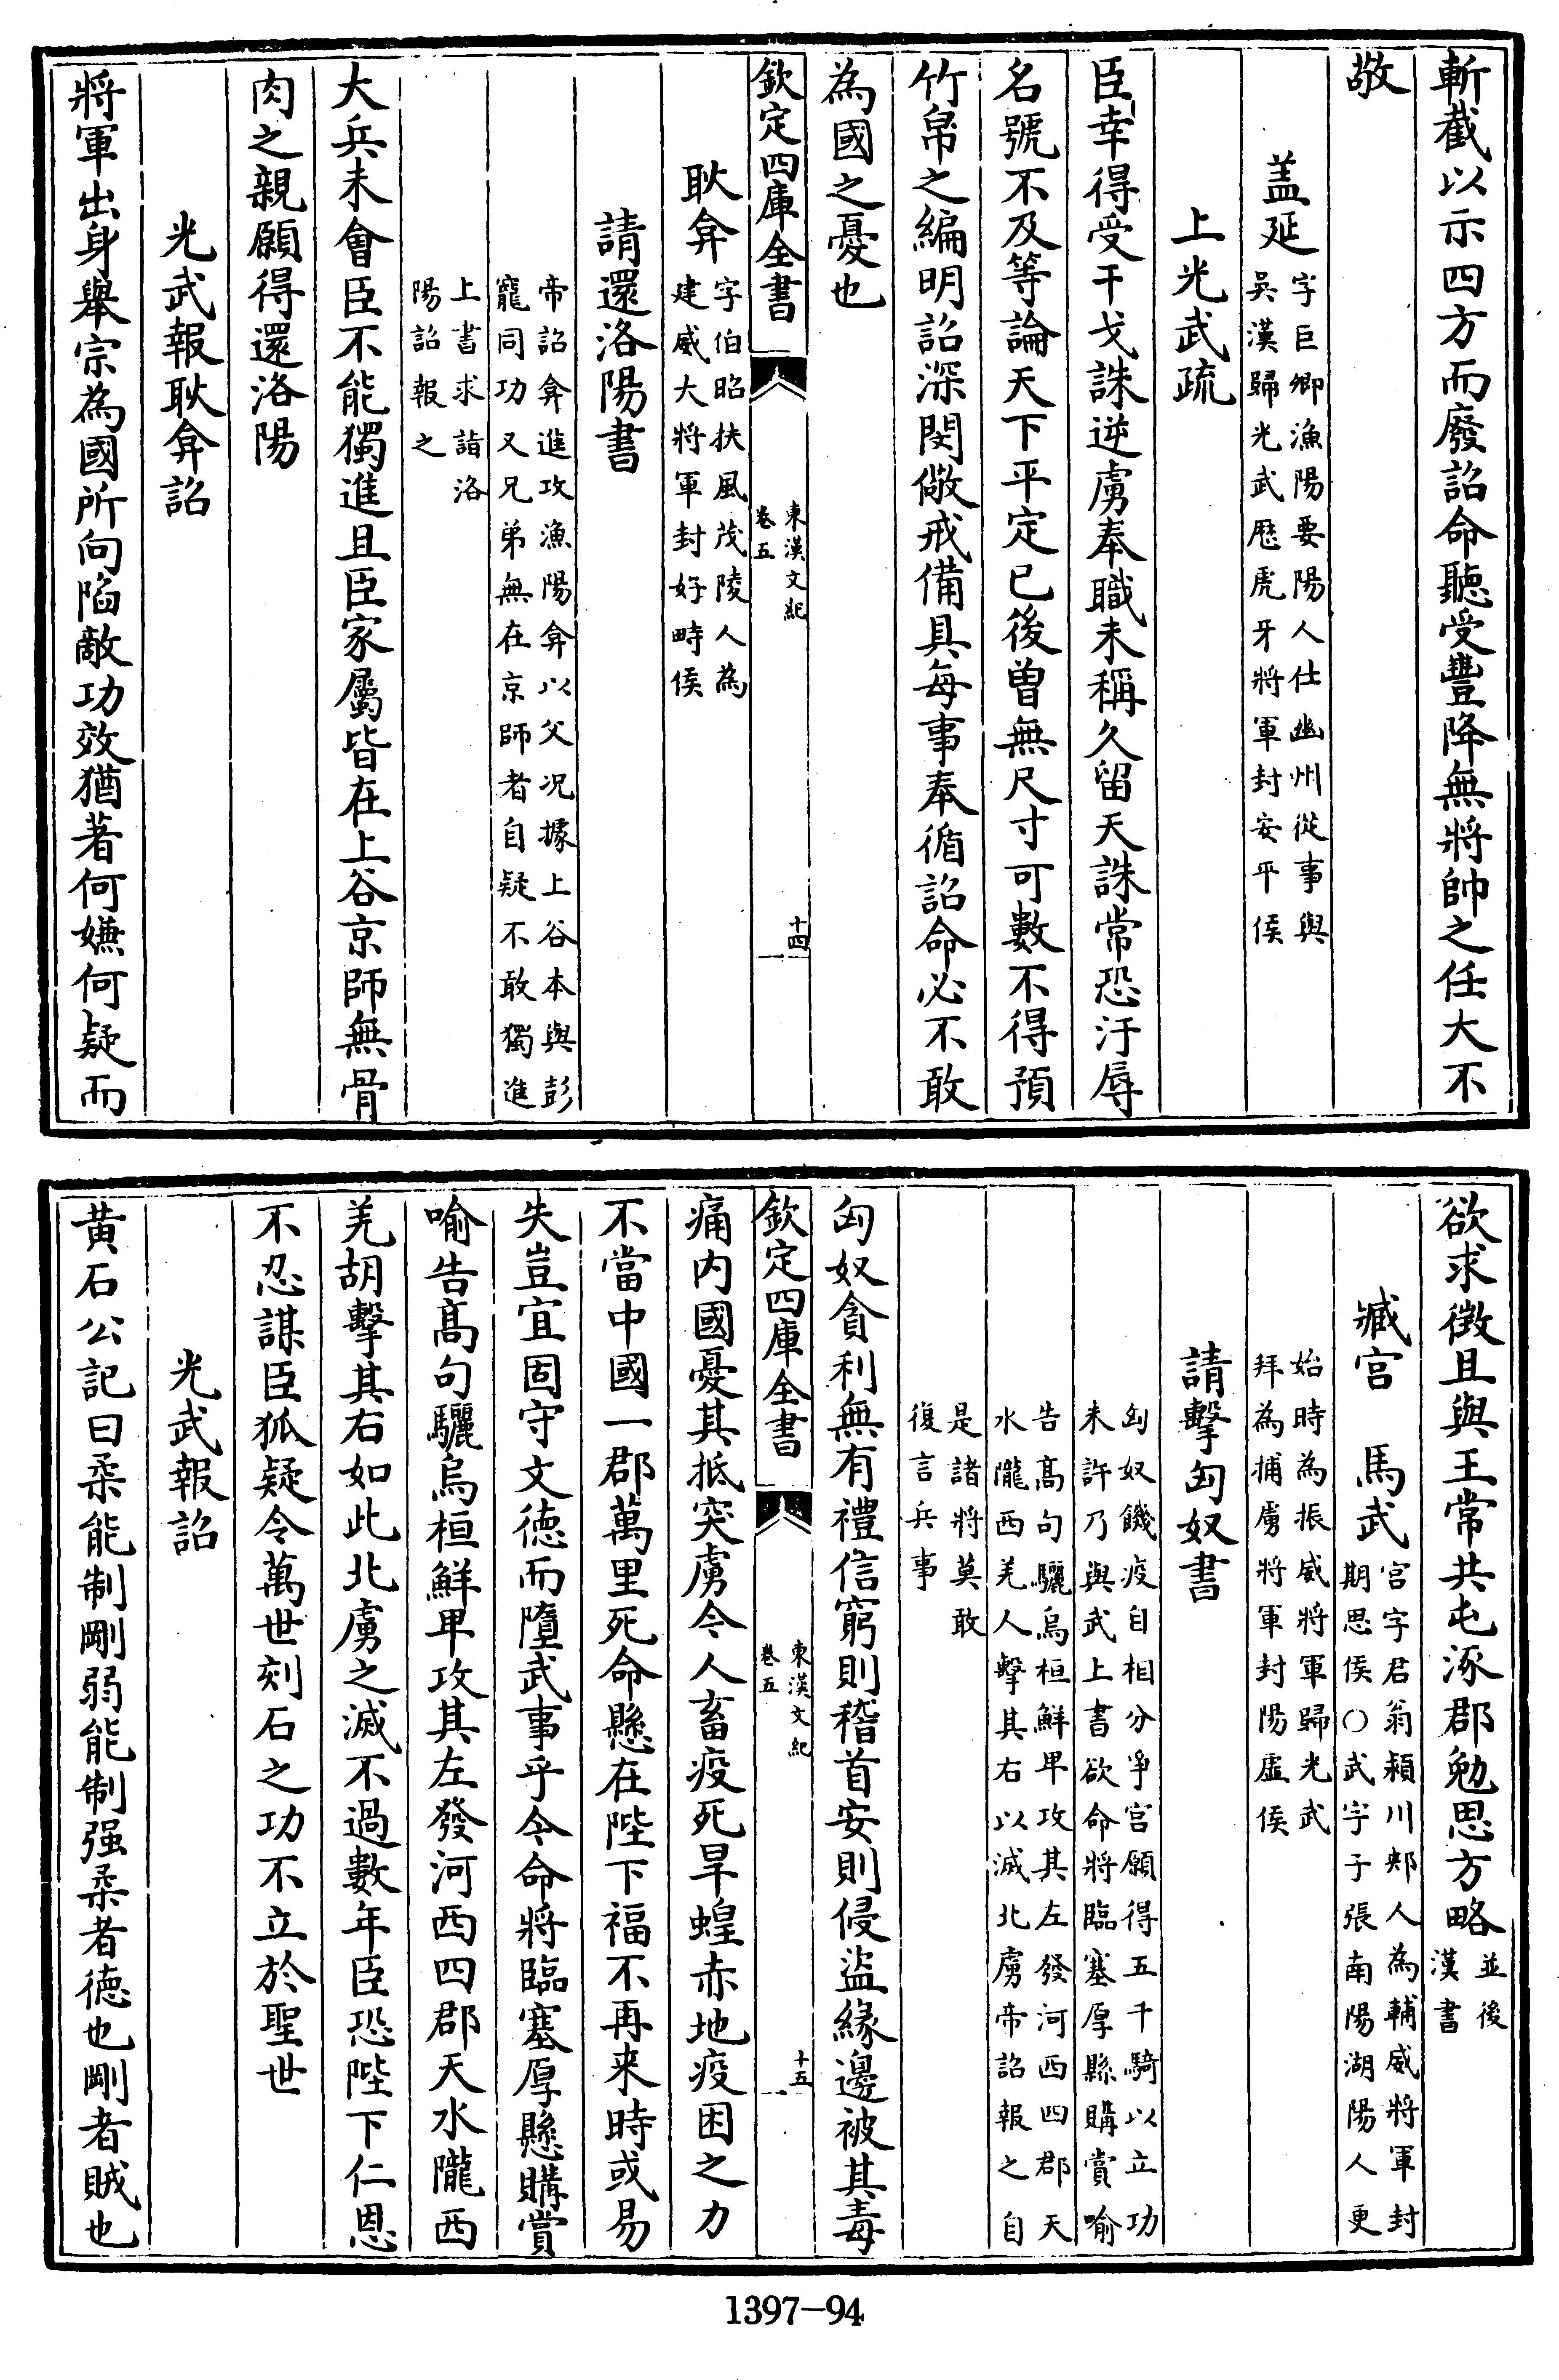 斬截以示四方而廢詔命聽受豐降無將帥之任大不
敬
盖延字巨卿漁陽要陽人仕幽州從事與
吳漢歸光武厯虎牙將軍封安平侯
上光武疏
臣幸得受干戈誅逆虜奉職未稱久留天誅常恐汙辱
名號不及等論天下平定已後曾無尺寸可數不得預
竹帛之編明詔深閔儆戒備具每事奉循詔命必不敢
為國之憂也
欽定四庫全書
東漢文紀
卷五
十四
耿弇字伯昭扶風茂陵人為
建威大將軍封好畤侯
請還洛陽書
帝詔弇進攻漁陽弇以父况據上谷本與彭
寵同功又兄弟無在京師者自疑不敢獨進
上書求詣洛
陽詔報之
大兵未會臣不能獨進且臣家屬皆在上谷京師無骨
肉之親願得還洛陽
光武報耿弇詔
將軍出身舉宗為國所向陷敵功效猶著何嫌何疑而
欲求徴且與王常共屯涿郡勉思方略並後
漢書
臧宮　馬武宫字君翁潁川郟人為輔威將軍封
期思侯〇武字子張南陽湖陽人更
始時為振威將軍歸光武
拜為捕虜將軍封陽虚侯
請擊匈奴書
匈奴饑疫自相分爭宫願得五千騎以立功
未許乃與武上書欲命將臨塞厚縣購賞喻
告髙句驪烏桓鮮卑攻其左發河西四郡天
水隴西羌人擊其右以滅北虜帝詔報之自
是諸將莫敢
復言兵事
匈奴貪利無有禮信窮則稽首安則侵盜緣邊被其毒
欽定四庫全書
東漢文紀
卷五
十五
痛内國憂其抵突虜今人畜疫死旱蝗赤地疫困之力
不當中國一郡萬里死命懸在陛下福不再来時或易
失豈宜固守文德而墮武事乎今命將臨塞厚懸購賞
喻告髙句驪烏桓鮮卑攻其左發河西四郡天水隴西
羌胡擊其右如此北虜之滅不過數年臣恐陛下仁恩
不忍謀臣狐疑令萬世刻石之功不立於聖世
光武報詔
黃石公記曰柔能制剛弱能制强柔者德也剛者賊也
1397-94